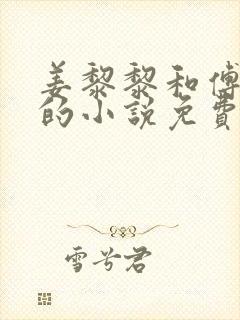 姜黎黎和傅
的小説免費
雪兮君